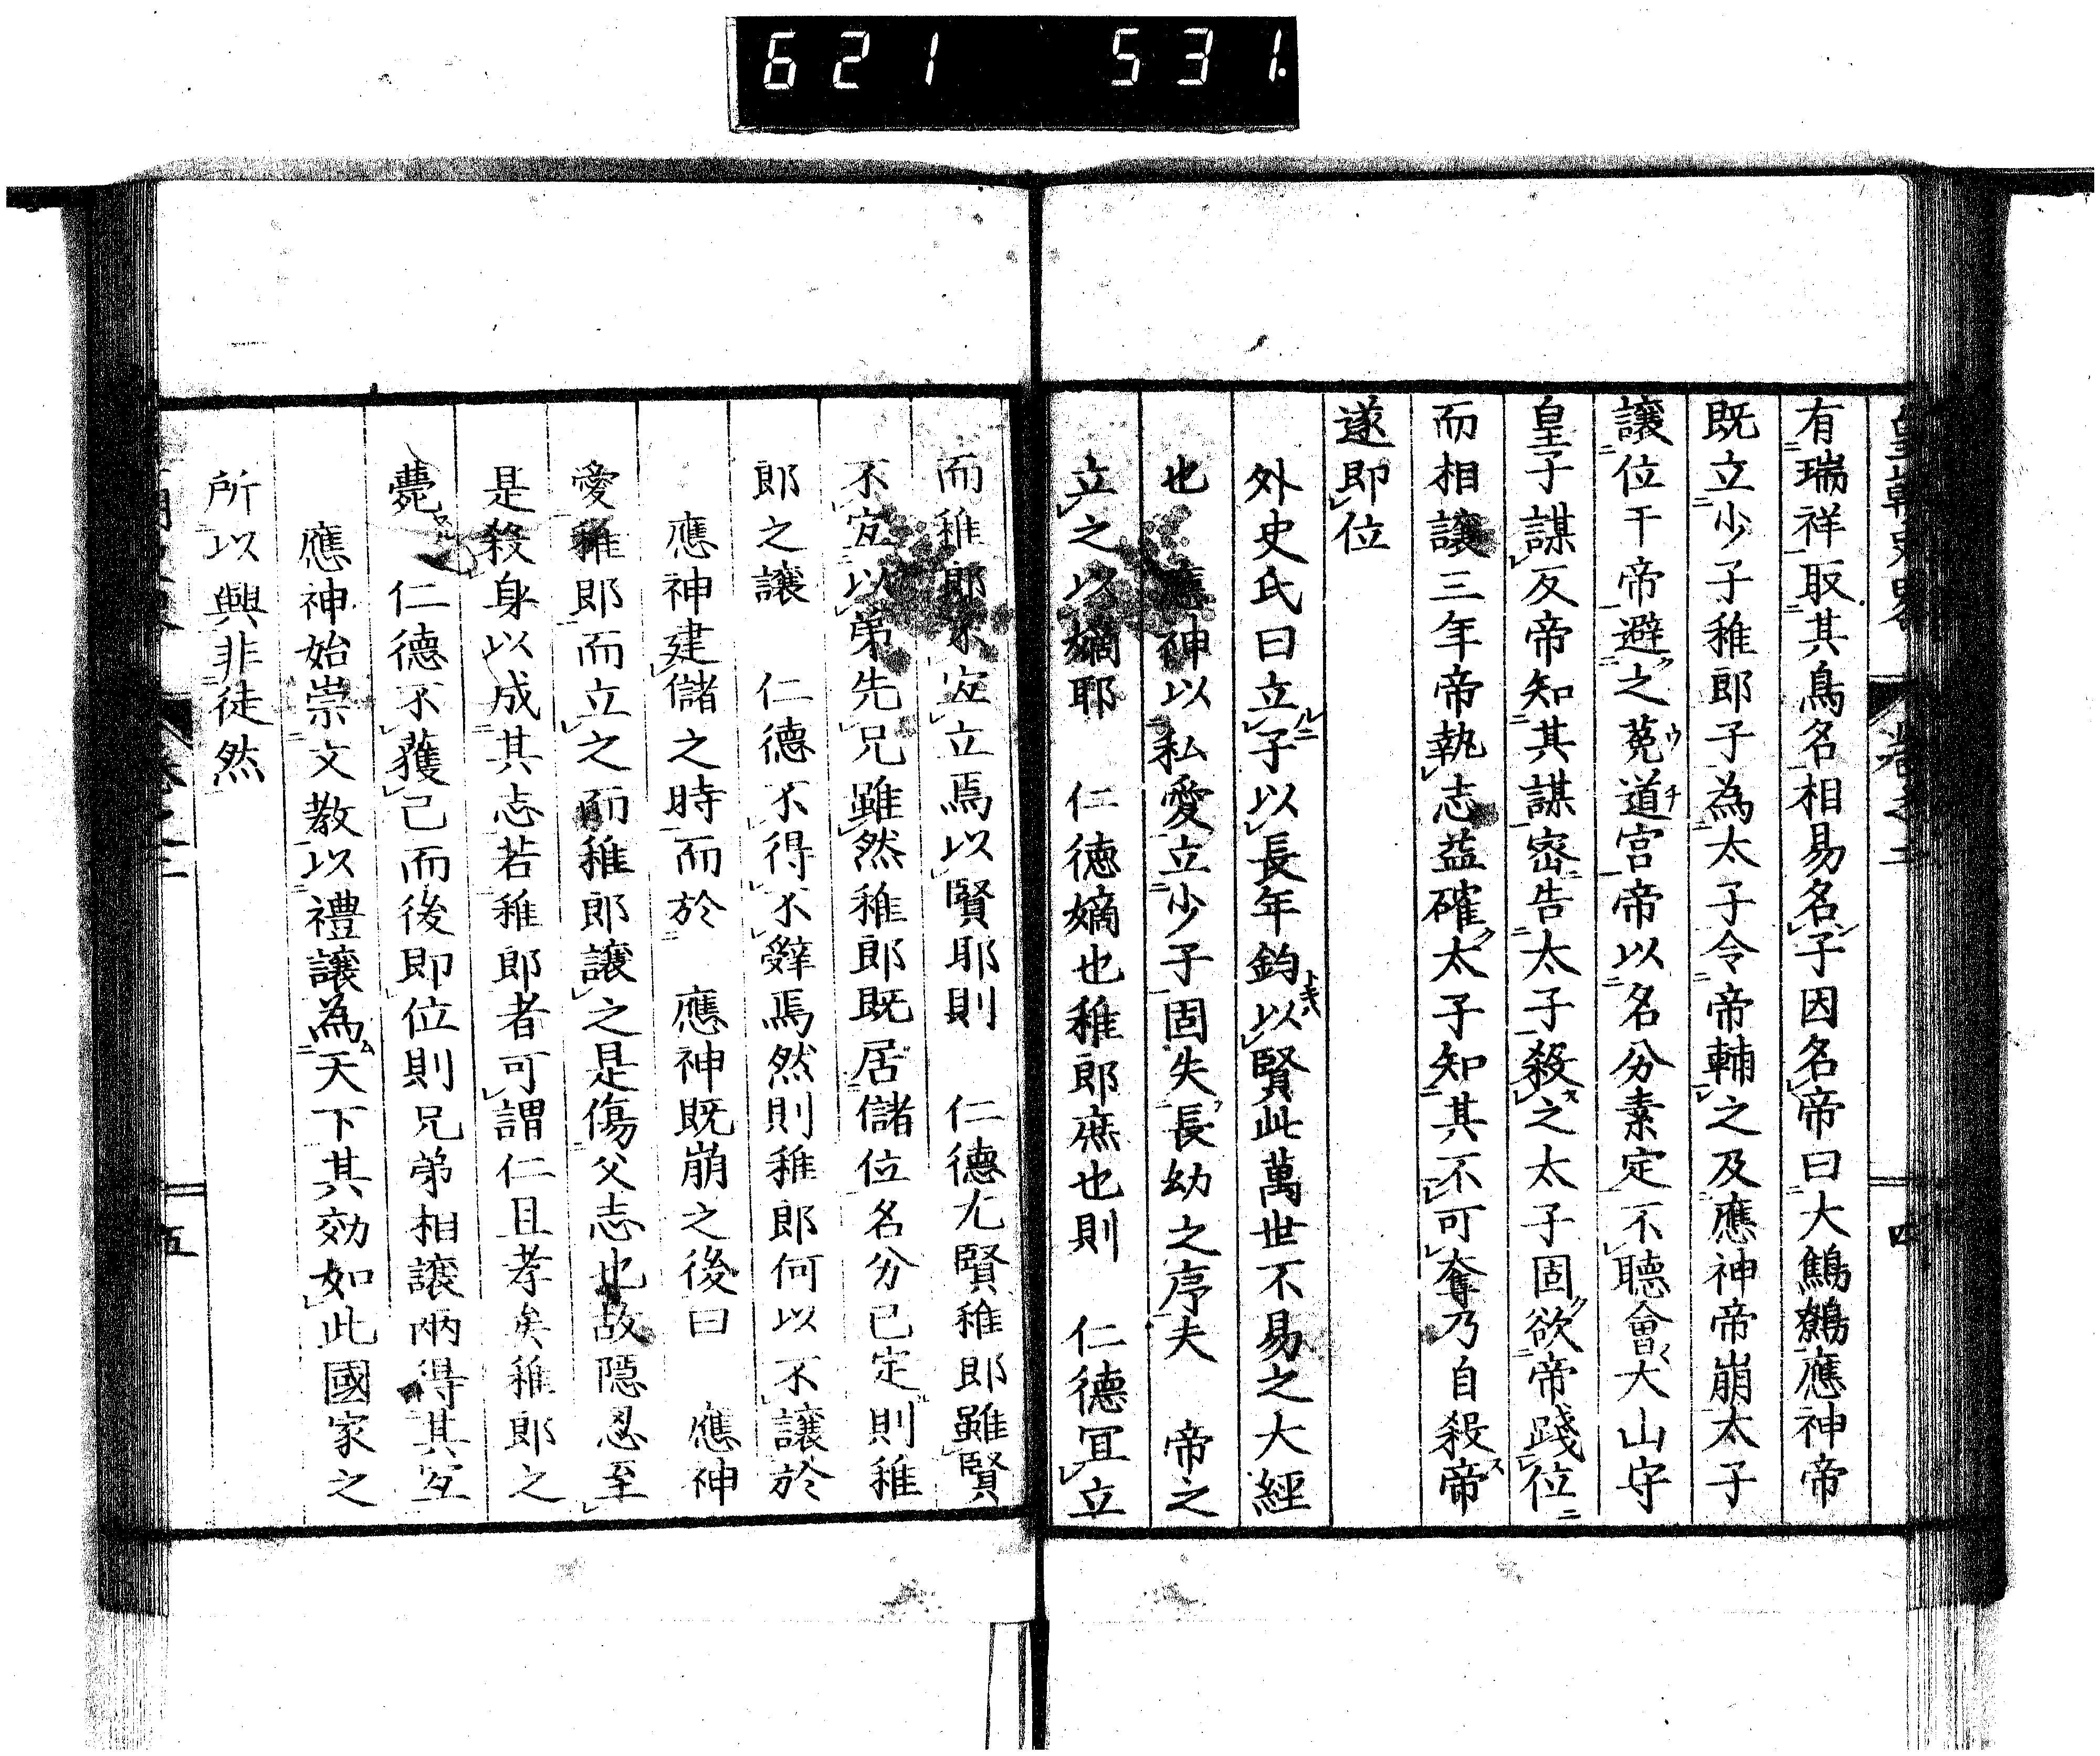 621 531.
有瑞祥取其鳥名相易名子因名帝曰大鷦鷯應神帝
既立少子稚郎子為太子令帝輔之及應神帝崩太子
讓位于帝避之菟道宮帝以名分素定不聽會大山守
皇子謀反帝知其謀密告太子殺之太子固欲帝踐位
而相讓三年帝執志益確太子知其不可奪乃自殺帝
遂即位
外史氏曰立子以長年鈞以賢此萬世不易之大經
也 應神以私愛立少子固失長幼之序夫 帝之
立之以嫡耶 仁徳嫡也稚郎庶也則 仁德冝立
而稚郎不冝立焉以賢耶則 仁德尤賢稚郎雖賢
不冝以弟先兄雖然稚郎既居儲位名分已定則稚
郎之讓 仁德不得不辭焉然則稚郎何以不讓於
應神建儲之時而於 應神既崩之後曰 應神
愛稚郎而立之而稚郎讓之是傷父志也故隱忍至
是殺身以成其志若稚郎者可謂仁且孝矣稚郎之
薨 仁德不獲已而後即位則兄弟相讓兩得其冝
應神始崇文教以禮讓為天下其効如此國家之
所以興非徒然
五